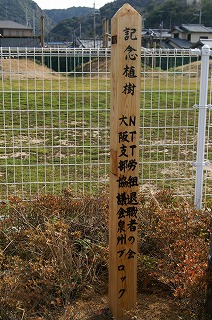 記念植樹
NTT労組退職者の会
大阪支部協議会泉州ブロック